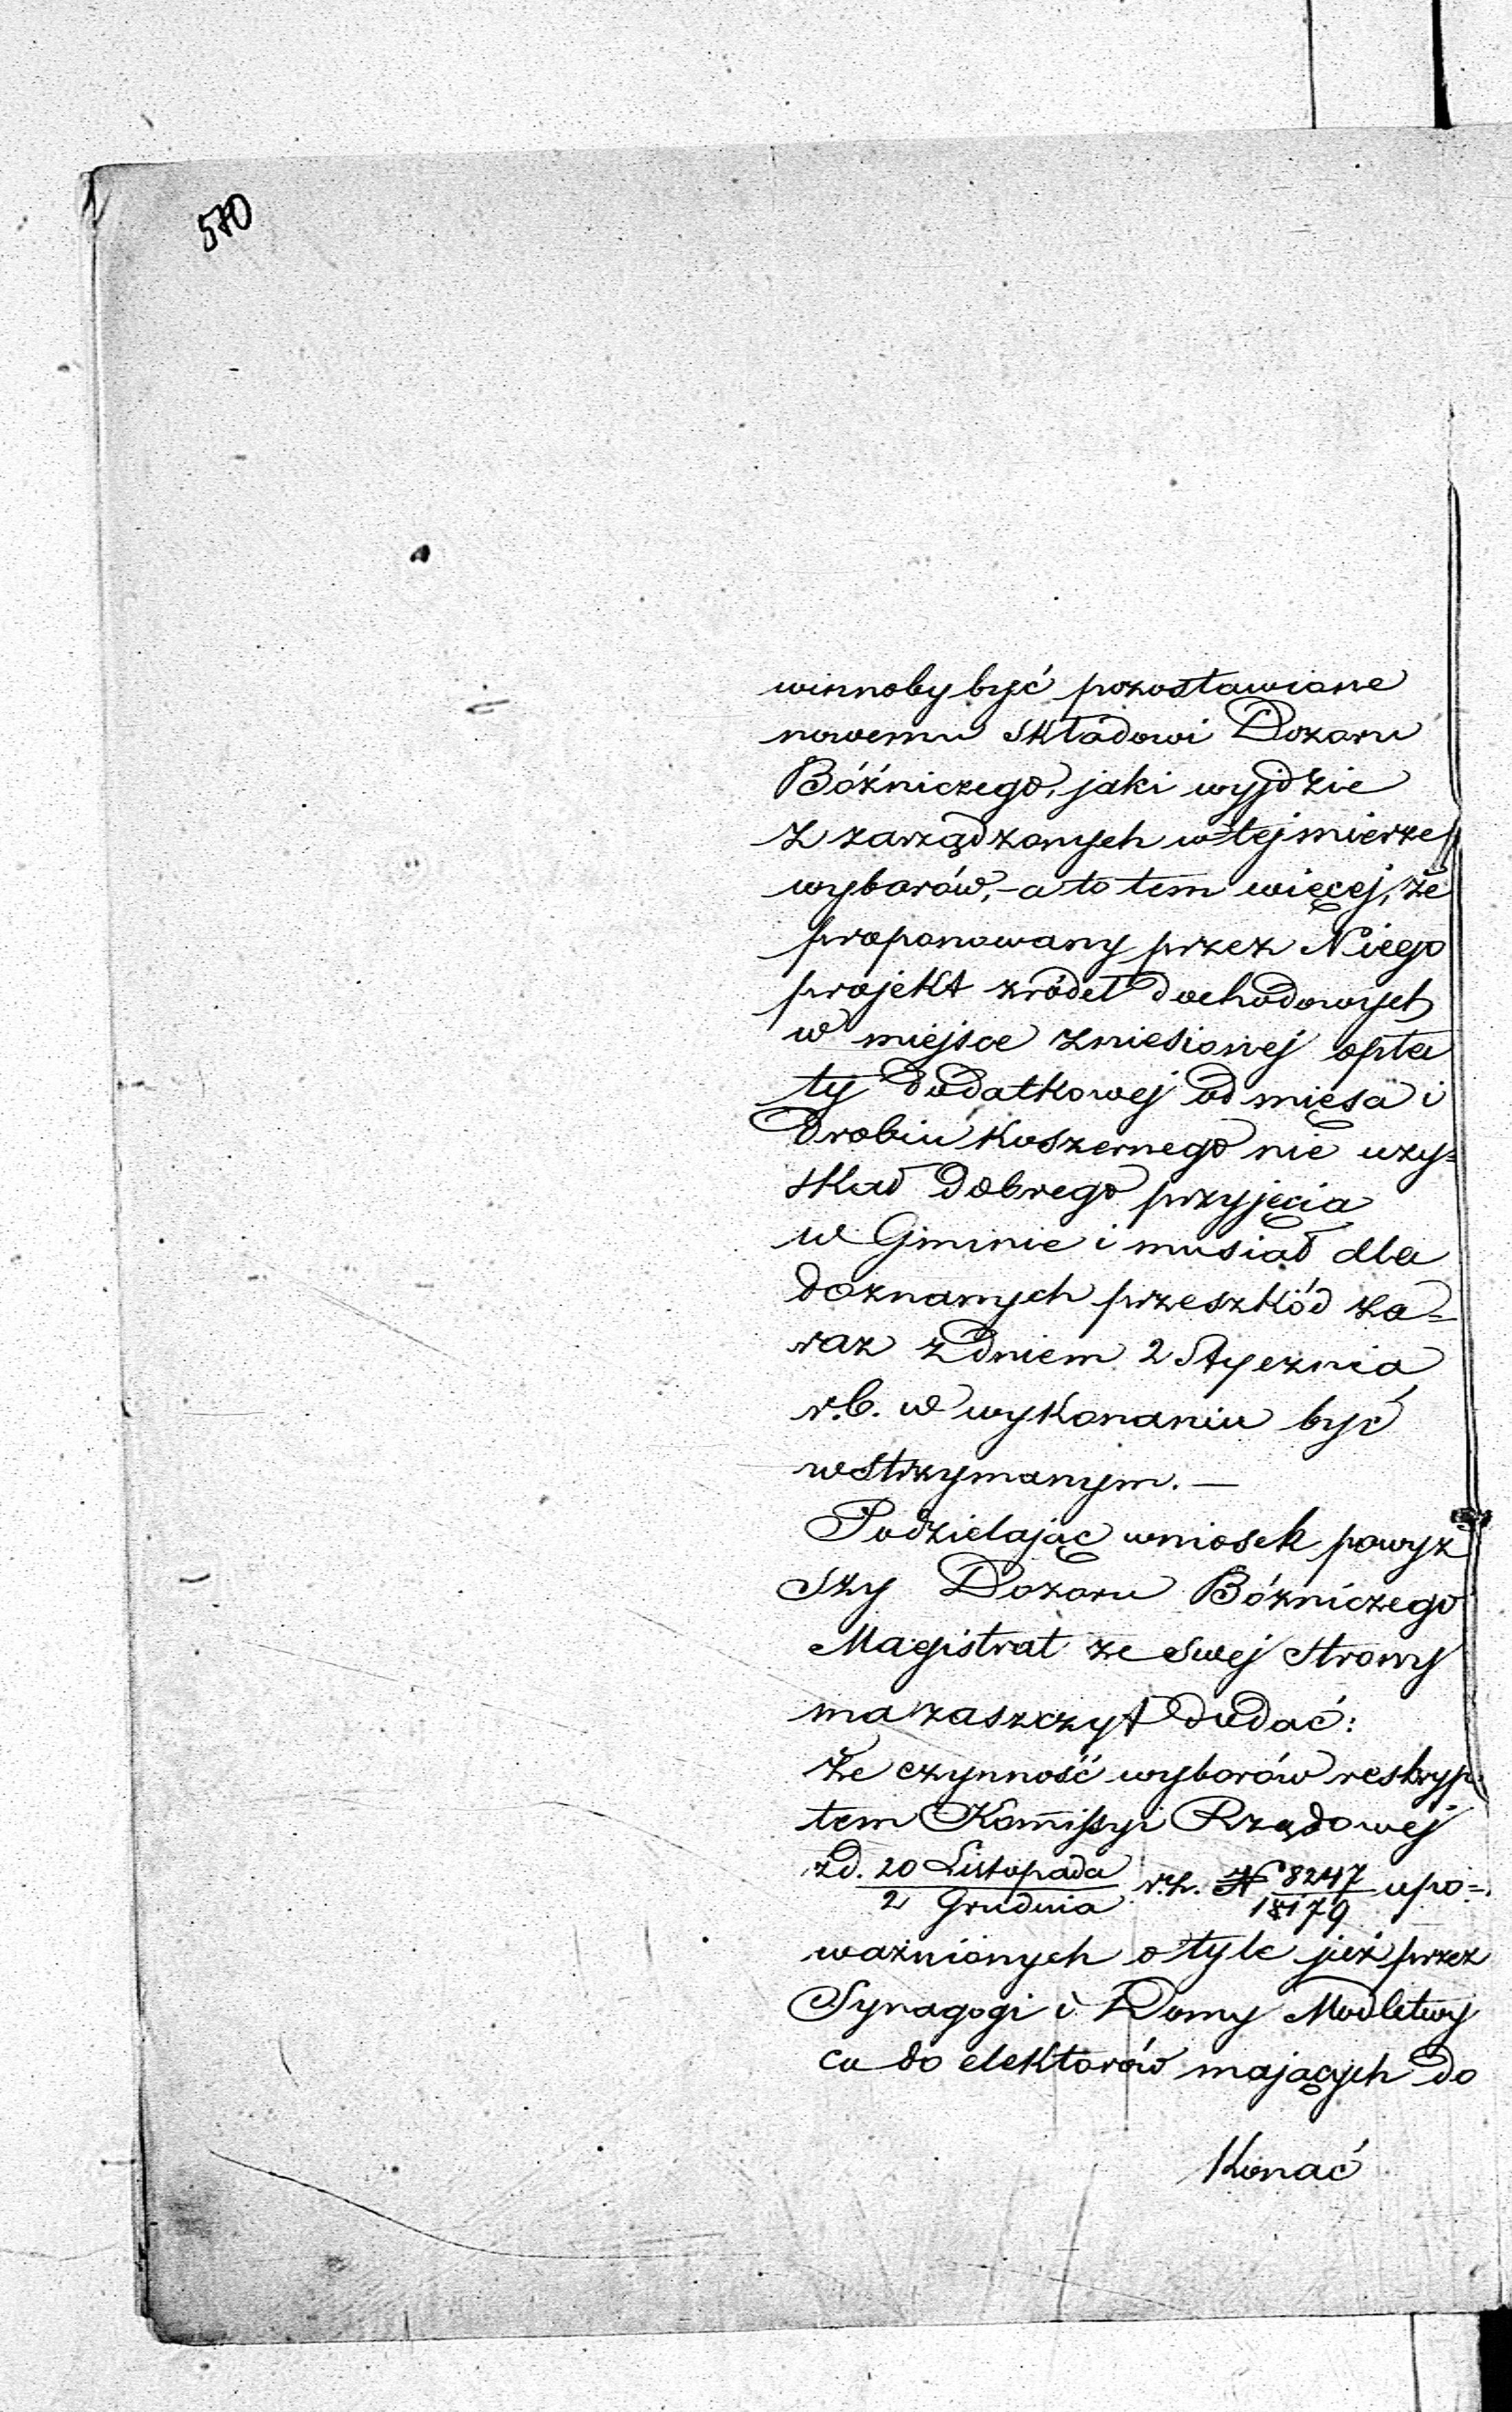 570
winnoby być pozostawione
nowemu składowi Dozoru
Bóżniczego, jaki wyjdzie
z zarządzonych w tej mierze
wyborów, - a to tem więcej, że
proponowany przez Niego
projekt źródeł dochodowych
w miejsce zniesionej opła
ty dodatkowej od mięsa i
drobiu koszernego nie uzy=
skał dobrego przyjęcia
w Gminie i musiał dla
doznanych przeszkód za=
raz z dniem 2 Stycznia
r.b. w wykonaniu być
wstrzymanym. —
Podzielając wniosek powyż
szy Dozoru Bóżniczego
Magistrat ze swej strony
ma zaszczyt dodać:
że czynność wyborów reskryp
tem Kommissyi Rządowej
z d. 20 Listopada / 2 Grudnia r.z. N 8247 / 18179 upo=
ważnionych o tyle już przez
Synagogi i Domy Modlitwy
co do elektorów mających do
konać